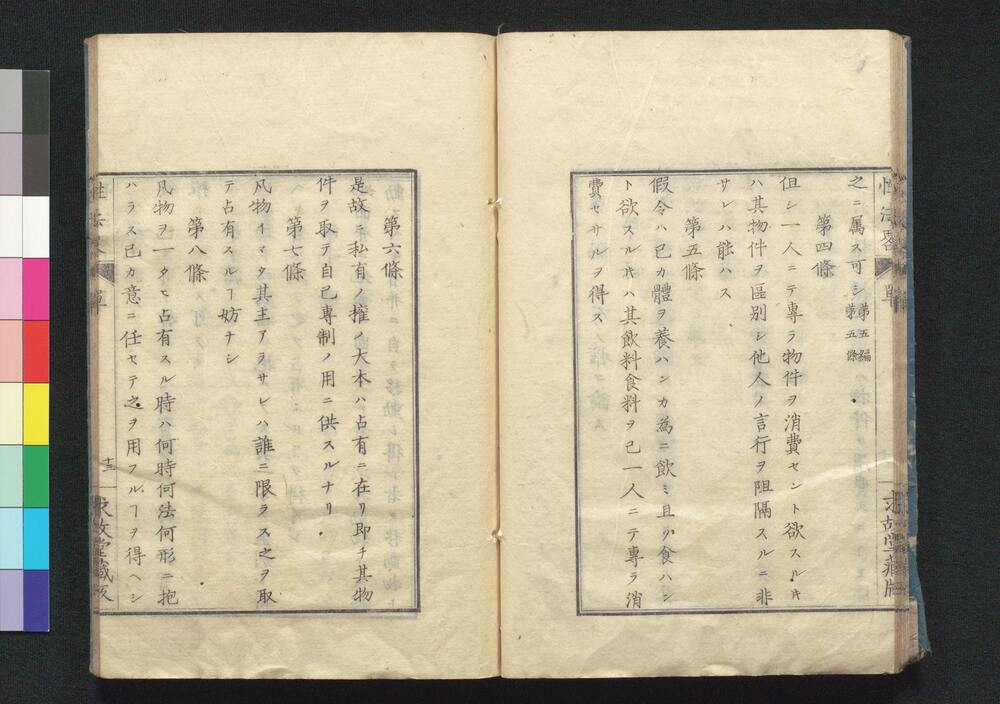 之ニ属ス可シ 第五編第五條
第四條
但シ一人ニテ專ラ物件ヲ消費セント欲スル𪜈
ハ其物件ヲ区別シ他人ノ言行ヲ阻隔スルニ非
サレハ能ハス
第五條
假令ハ已カ體ヲ養ハンカ為ニ飲ミ且ツ食ハン
ト欲スル𪜈ハ其飲料食料ヲ已一人ニテ專ラ消
費セサルヲ得ス
求故堂藏版
第六條
是故ニ私有ノ權ノ大本ハ占有ニ在リ即チ其物
件ヲ取テ自己專制ノ用ニ供スルナリ
第七條
凡物イマタ其主アラサレハ誰ニ限ラス之ヲ取
テ占有スルヿ妨ナシ
第八條
凡物ヲ一タヒ占有スル時ハ何時何法何形ニ抱
ハラス已カ意ニ任セテ之ヲ用フルヿヲ得ヘシ
單
十三
求故堂藏版